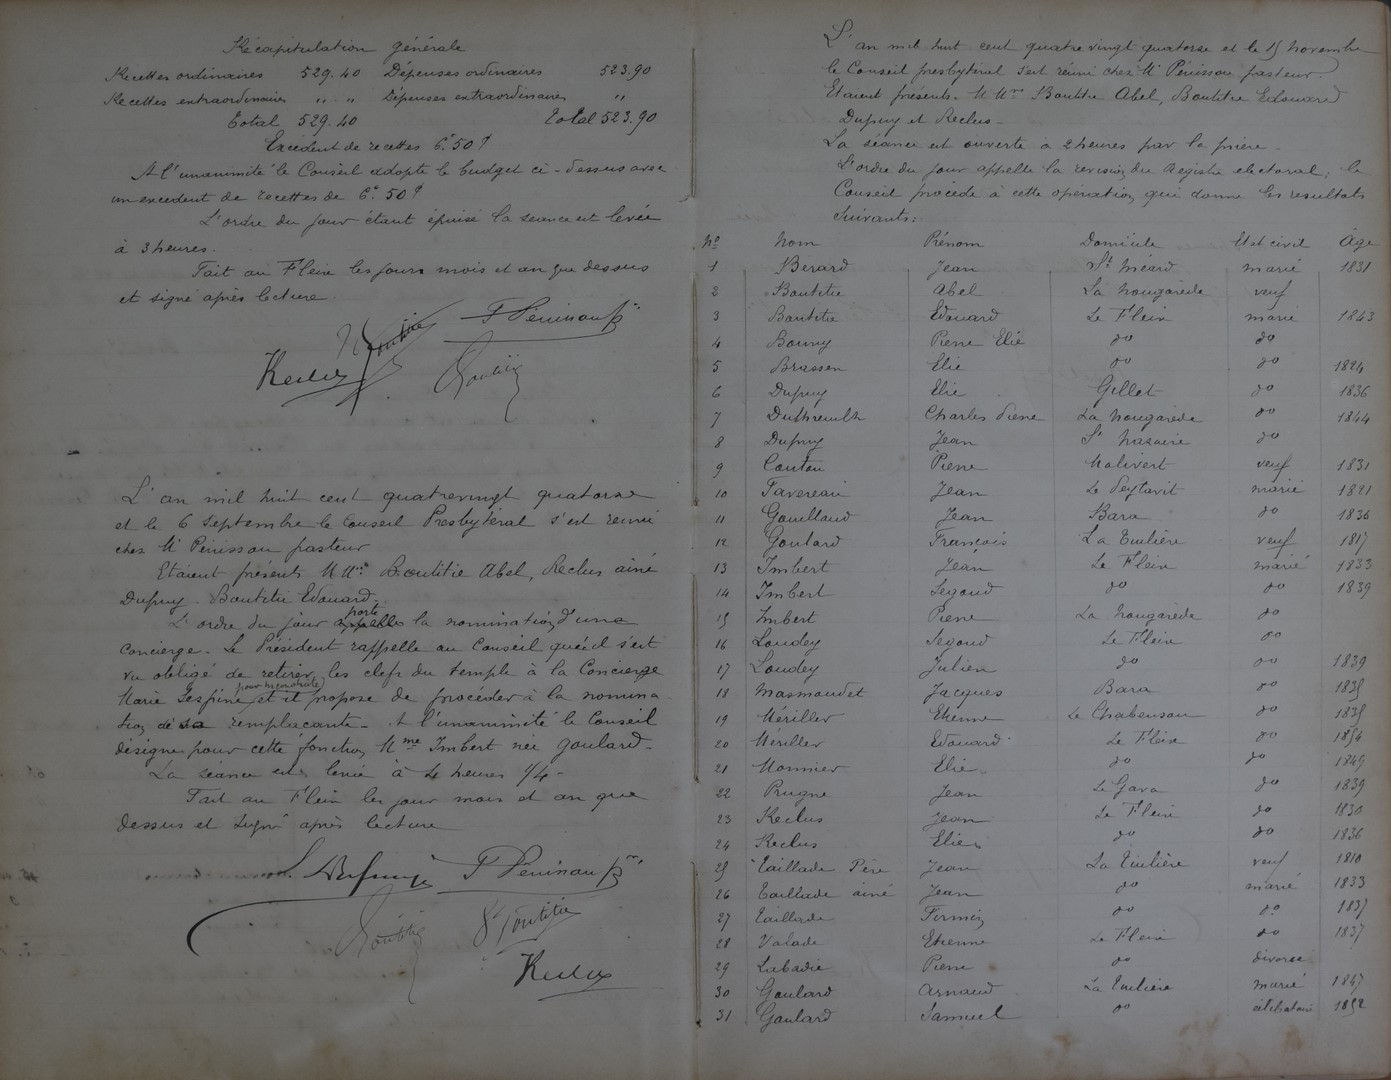 Récapitulation générale
Recettes ordinaires 529.40 Dépenses ordinaires 523.90
Recettes extraordinaires " " Dépenses extraordinaires "
Total 529.40 Total 523.90
Excédent de recettes 5.50
A l'unanimité le Conseil adopte le budget ci-dessus avec
un excedent de recettes de 5.50
L'ordre du jour étant épuisé la séance est levée
à 3 heures.
Fait au Fleix les jours mois et an que dessus
et signé après lecture.
Boutitie F Pénissou
Reclus Boutitie
L'an mil huit cent quatrevingt quatorze
et le 6 Septembre le Conseil Presbytéral s'est réuni
chez Mr Pénissou pasteur
Etaient présents MMrs Boutitie Abel, Reclus ainé
Dupuy. Boutitie Edouard.
L'ordre du jour porte la nomination d'une
concierge. Le Président rappelle au Conseil qu'il s'est
vu obligé de retirer les clefs du temple à la Concierge
Marie Lespine pour inconduite et il propose de procéder à la nomina
tion de sa remplaçante. A l'unanimité le Conseil
désigne pour cette fonction Mme Imbert née Goulard.
La séance est levée à 4 heures 1/4.
Fait au Fleix les jour mois et an que
dessus et signé après lecture
Dupuy F Pénissou
Boutitie Boutitie
Reclus
L'an mil huit cent quatre vingt quatorze et le 15 novembre
le Conseil presbytéral s'est réuni chez Mr Pénissou pasteur.
Etaient présents. MMrs Boutitie Abel, Boutitie Edouard
Dupuy et Reclus.
La séance est ouverte à 2 heures par la prière.
L'ordre du jour appelle la revision du Registre electoral; le
Conseil procède à cette opération qui donne les resultats
suivants:
No Nom Prénom Domicile Etat civil Age
1 Berard Jean St Méard marié 1831
2 Boutitie Abel La Nougarède veuf
3 Boutitie Edouard Le Fleix marié 1843
4 Bonny Pierre Elie do do
5 Brassen Elie do do 1824
6 Dupuy Elie Gillet do 1836
7 Duthreuilh Charles Pierre La Nougarède do 1844
8 Dupuy Jean St Nazaire do
9 Couton Pierre Malivert veuf 1831
10 Favereau Jean Le Peytavit marié 1821
11 Gouillaud Jean Bara do 1836
12 Goulard François La Tuilière veuf 1817
13 Imbert Jean Le Fleix marié 1833
14 Imbert Segond do do 1839
15 Imbert Pierre La Nougarède do
16 Loudey Segond Le Fleix do
17 Loudey Julien do do 1839
18 Masmoudet Jacques Bara do 1835
19 Mériller Etienne Le Chabensou do 1835
20 Mériller Edouard Le Fleix do 1854
21 Monnier Elie do do 1849
22 Prugne Jean Le Gava do 1839
23 Reclus Jean Le Fleix do 1830
24 Reclus Elie do do 1836
25 Taillade Père Jean La Tuilière veuf 1810
26 Taillade ainé Jean do marié 1833
27 Taillade Firmin do do 1837
28 Valade Etienne Le Fleix do 1837
29 Labadie Pierre do divorcé
30 Goulard Arnaud La Tuilière marié 1847
31 Goulard Samuel do célibataire 1852